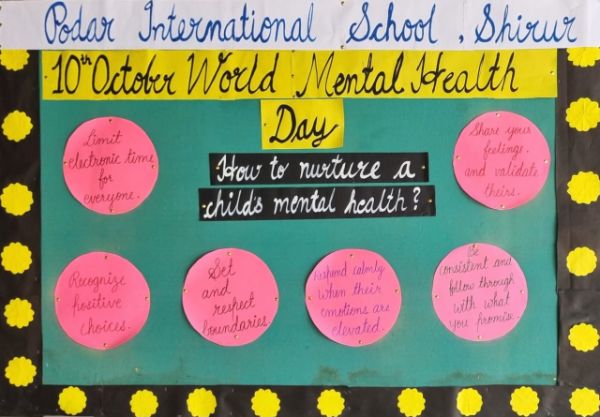 Podar International School, Shirur
10th October World Mental Health
Day
How to nurture a
child's mental health?
Limit
electronic time
for
everyone.
Share your
feelings.
and validate
theirs.
Recognize
positive
choices.
Set
and
respect
boundaries.
Respond calmly
when their
emotions are
elevated.
Be
consistent and
follow through
with what
you promise.